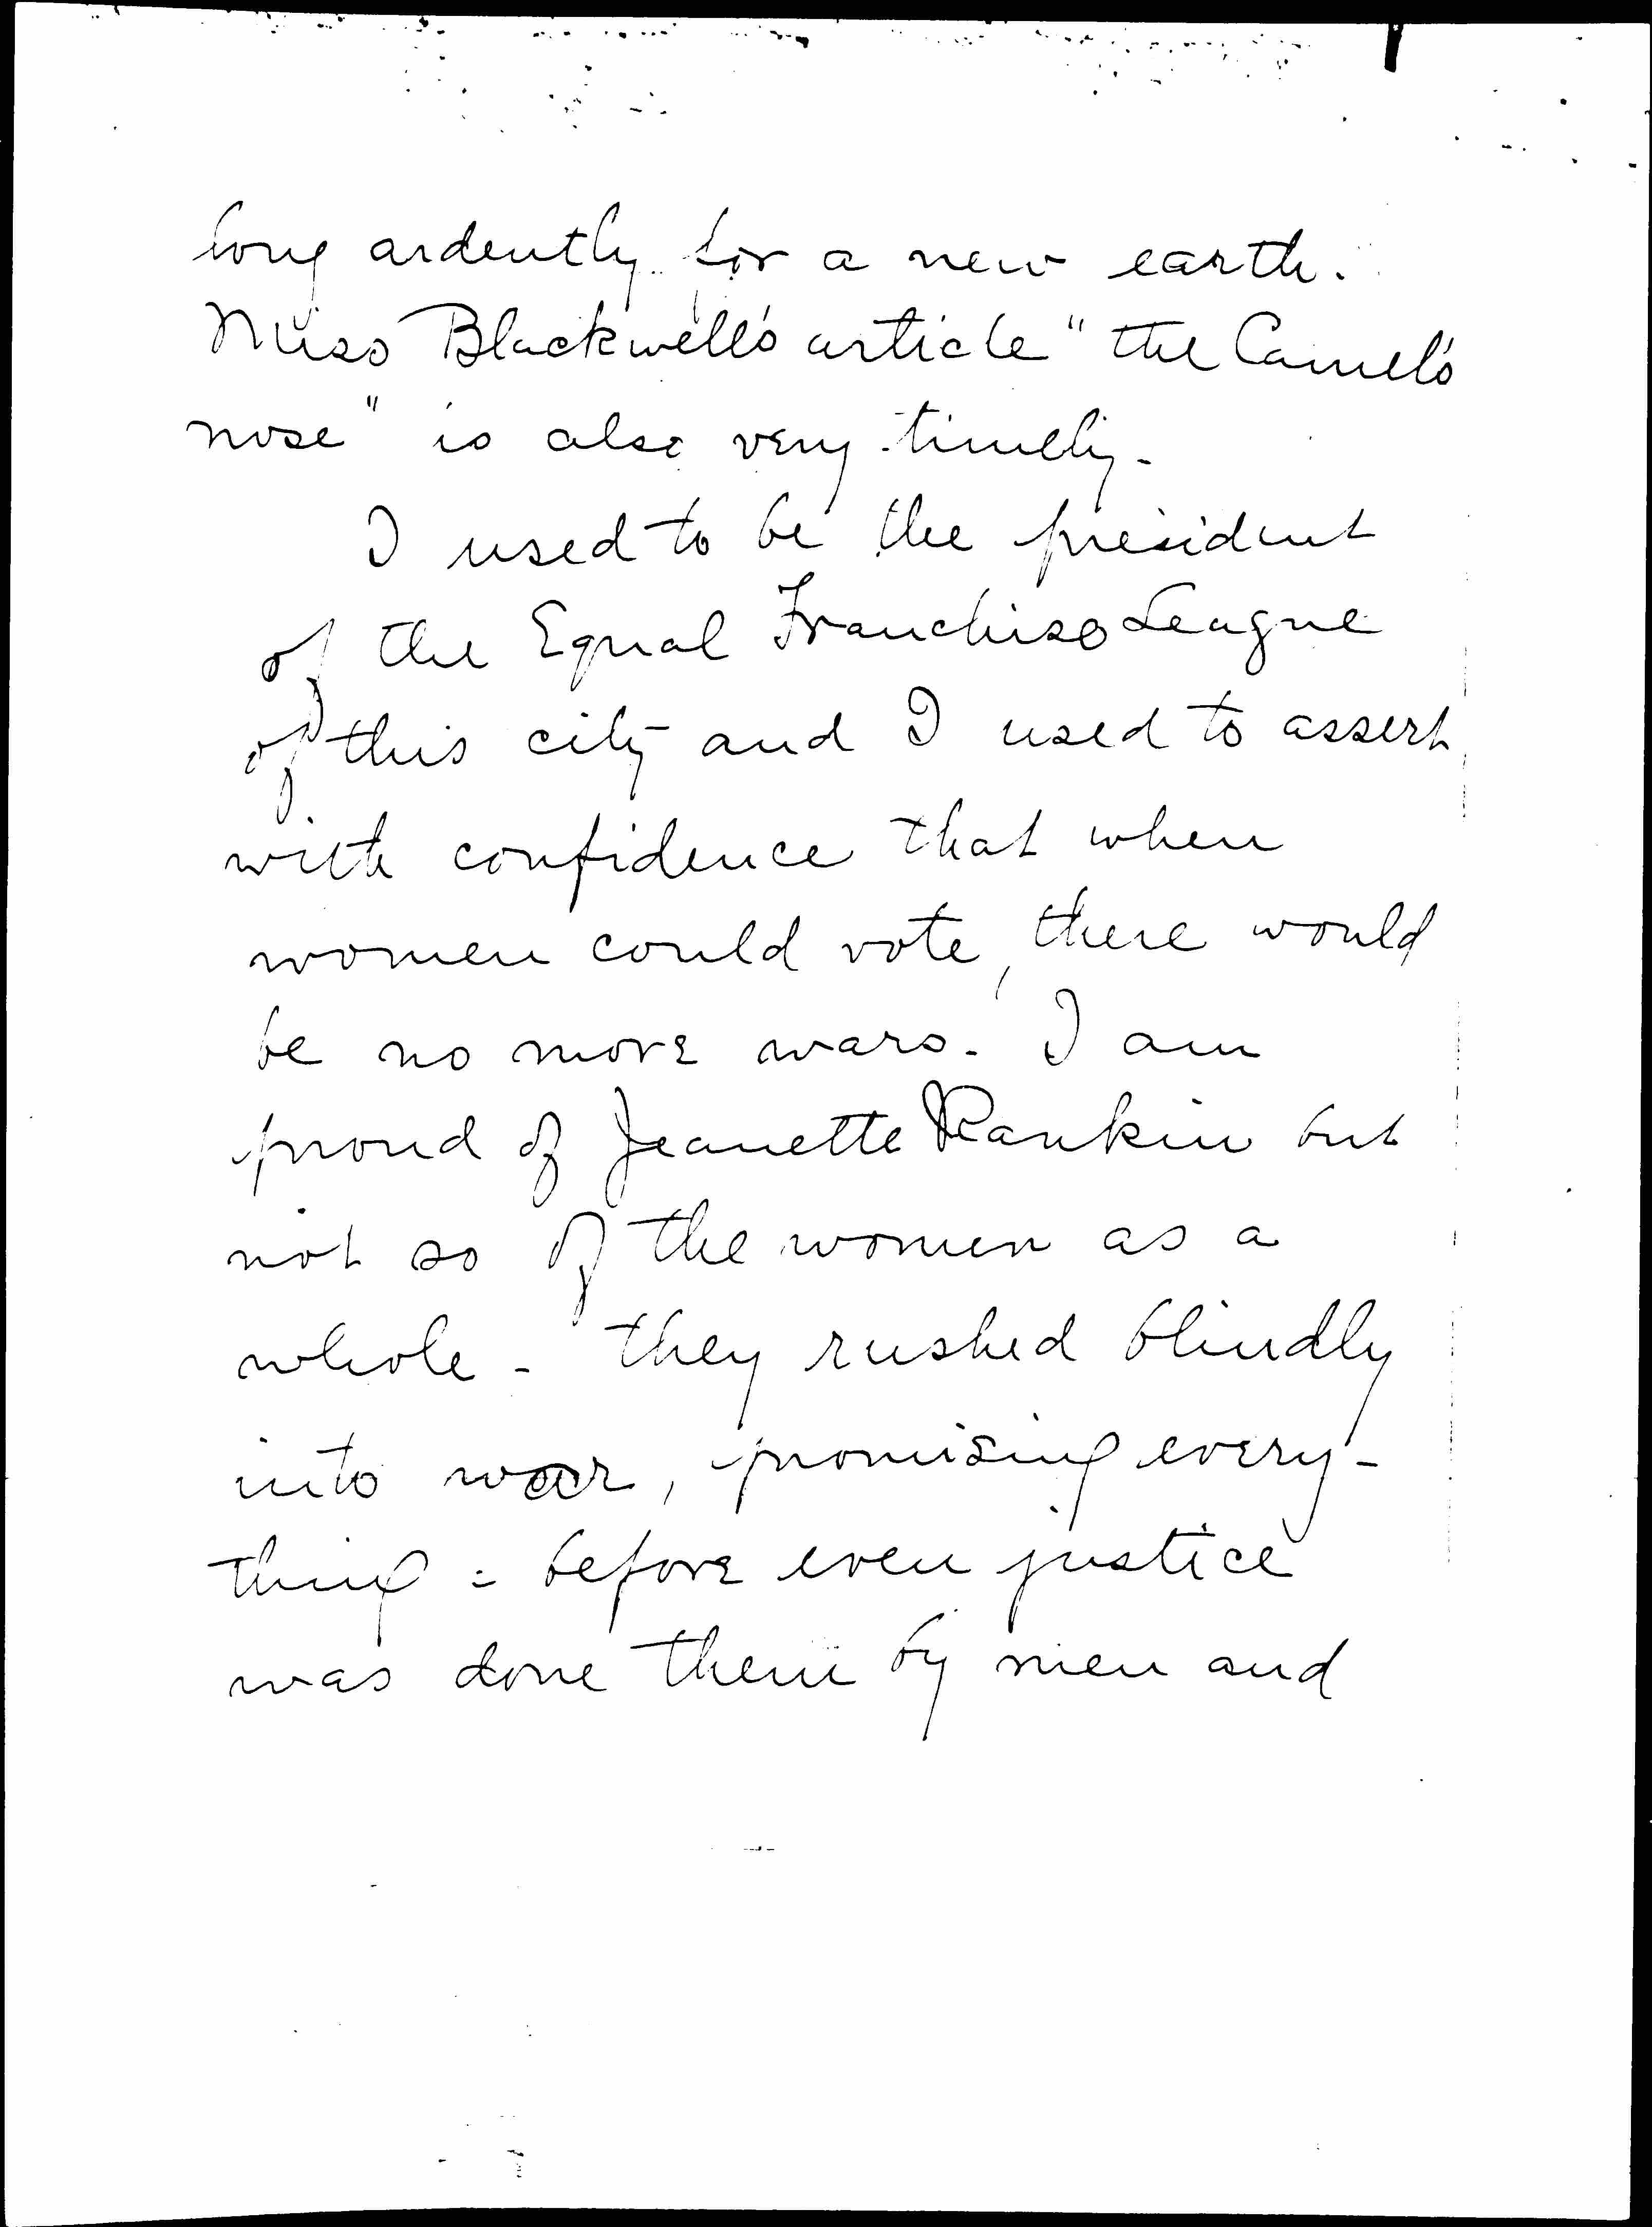 long ardently for a new earth.
Miss Blackwell's article "the Camel's
nose" is also very timely.
I used to be the president
of the Equal Franchise League
of this city and I used to assert
with confidence that when
women could vote, there would
be no more wars. I am
proud of Jeanette Rankin but
not so of the women as a
whole - they rushed blindly
into war, promising every-
thing - before even justice
was done them by men and